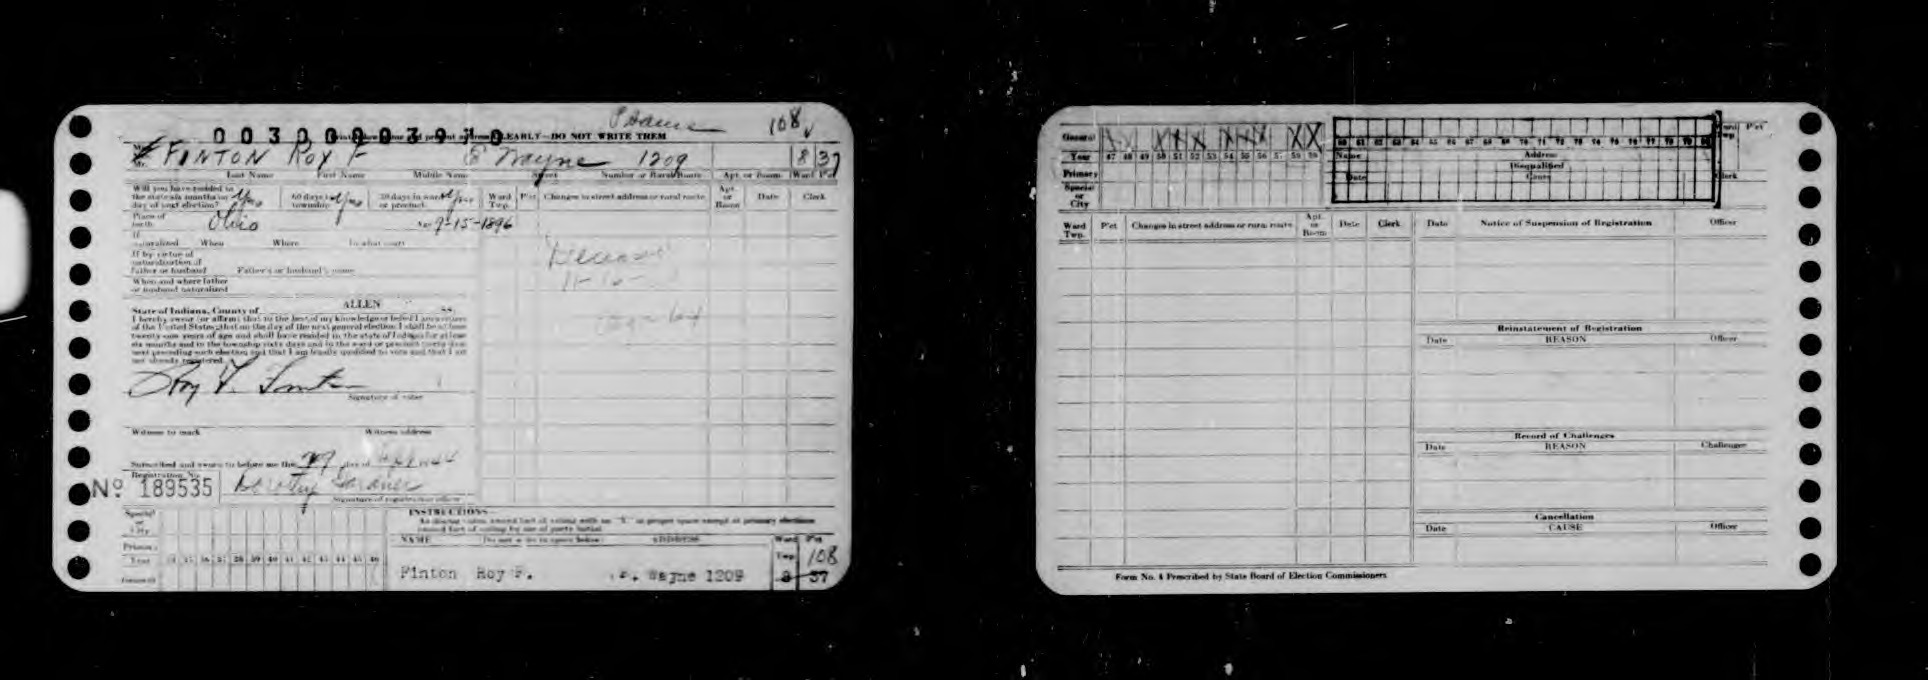 108
00300003910 LEARLY—DO NOT WRITE THEM
FINTON ROY F E Wayne 1209 8 37
Last Name First Name Middle Name Street Number or Rural Route Apt. or Room Ward Pct
Will you have resided in
the state six months on
day of next election? yes 60 days in township yes 30 days in ward or precinct yes
Ward Twp. P'ct Changes in street address or rural route Apt. or Room Date Clerk
Place of birth Ohio 9-15-1896
If naturalized When Where In what court
If by virtue of
naturalization of
father or husband Father's or husband's name
When and where father
or husband naturalized
Deceased
ALLEN
State of Indiana, County of SS.
I hereby swear (or affirm) that to the best of my knowledge or belief I am a citizen
of the United States; that on the day of the next general election I shall be at least
twenty-one years of age and shall have resided in the state of Indiana for at least
six months and in the township sixty days and in the ward or precinct thirty days
next preceding such election and that I am legally qualified to vote and that I am
not already registered.
Roy F. Finton
Signature of voter
Witness to mark Witness address
Subscribed and sworn to before me this 29 day of
Registration No.
No 189535 Dorothy Gardner
Signature of registration officer
Special or City
Primary
Year 34 35 36 37 38 39 40 41 42 43 44 45 46
General
INSTRUCTIONS—
NAME Do not write in space below ADDRESS Ward Twp. P'ct
108
Finton Roy F. E. Wayne 1209 8 37
General
Year 47 48 49 50 51 52 53 54 55 56 57 58 59
Primary
Special or City
60 61 62 63 64 65 66 67 68 69 70 71 72 73 74 75 76 77 78 79 80
Name Address
Disqualified
Date Cause Clerk
Ward Twp. P'ct
Ward Twp. P'ct Changes in street address or rural route Apt. or Room Date Clerk
Date Notice of Suspension of Registration Officer
Reinstatement of Registration
Date REASON Officer
Record of Challenges
Date REASON Challenger
Cancellation
Date CAUSE Officer
Form No. 4 Prescribed by State Board of Election Commissioners